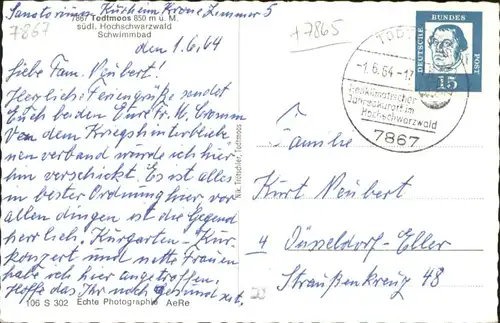 Sanatorium Kurheim Krone Zimmer 5
7867 Todtmoos 850 m ü. M.
südl. Hochschwarzwald
Schwimmbad
7867
den 1.6.64
Liebe Fam. Neubert!
Herzliche Feriengrüße sendet
Euch beiden Eure Fr. M.
Von dem Kriegshinterblieb
nen verband wurde ich hier
hin verschickt. Es ist alles
in bester Ordnung hier vor
allen dingen ist die Gegend
herrlich. Kurgarten - Kur-
konzert und nette Frauen
habe ich hier angetroffen.
Hoffe das Ihr noch gesund seit.
106 S 302 Echte Photographie AeRe
Nik. Trötschler, Todtmoos
+7865
TODT
-1.6.64-17
heilklimatischer
Jahreskurort im
Hochschwarzwald
7867
DEUTSCHE
BUNDES
POST
15
Familie
Kurt Neubert
4 Düsseldorf-Eller
Straußenkreuz 48